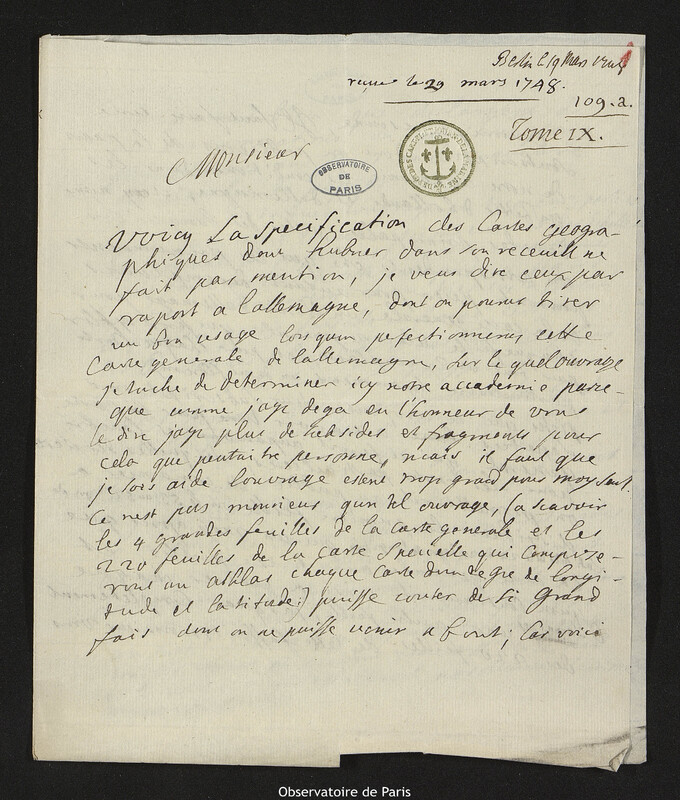 Berlin le 19 Mars 1748
reçue le 29 mars 1748.
109.2.
Tome IX.
Monsieur
OBSERVATOIRE DE PARIS
Voicy La specification des Cartes geogra-
phiques dont hubner dans son receuill ne
fait pas mention, je veus dire ceux par
raport a lallemagne, dont on pourra tirer
un bon usage lorsquon pefectionnera cette
Carte generale de lallemagne, sur le quel ouvrage
je tache de determiner icy notre accademie parce-
que comme jaye deja eu l'honneur de vous
le dire jaye plus de subsides et fragments pour
cela que peutaitre personne, mais il faut que
je sois aide louvrage estent trop grand pour moy seul.
Ce nest pas monsieur quun tel ouvrage, (a scavoir
les 4 grandes feuilles de la carte generale et les
220 feuilles de la Carte Specielle qui compose-
ront un athlas chaque Carte dun degre de longi-
tude et latitude:) puisse couter de si grand
fais dont on ne puisse venir a bout; Car voici
Observatoire de Paris